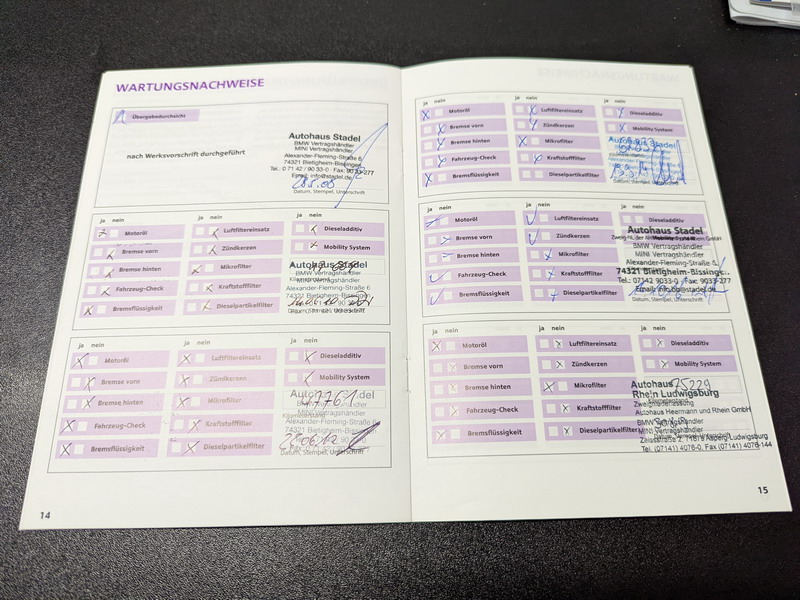 WARTUNGSNACHWEISE
Übergabedurchsicht
nach Werksvorschrift durchgeführt
Autohaus Stadel
BMW Vertragshändler
MINI Vertragshändler
Alexander-Fleming-Straße 6
74321 Bietigheim-Bissingen
Tel.: 0 71 42 / 90 33-0 Fax: 90 33-277
Email: info@stadel.de
Datum, Stempel, Unterschrift
ja nein
ja nein
ja nein
Motoröl
Luftfiltereinsatz
Dieseladditiv
Bremse vorn
Zündkerzen
Mobility System
Bremse hinten
Mikrofilter
Fahrzeug-Check
Kraftstofffilter
Bremsflüssigkeit
Dieselpartikelfilter
Autohaus Stadel
BMW Vertragshändler
MINI Vertragshändler
Alexander-Fleming-Straße 6
74321 Bietigheim-Bissingen
Datum, Stempel, Unterschrift
ja nein
ja nein
ja nein
Motoröl
Luftfiltereinsatz
Dieseladditiv
Bremse vorn
Zündkerzen
Mobility System
Bremse hinten
Mikrofilter
Fahrzeug-Check
Kraftstofffilter
Bremsflüssigkeit
Dieselpartikelfilter
Autohaus Stadel
47761
MINI Vertragshändler
Kilometerstand
Alexander-Fleming-Straße 6
74321 Bietigheim-Bissingen
Datum, Stempel, Unterschrift
14
ja nein
ja nein
ja nein
Motoröl
Luftfiltereinsatz
Dieseladditiv
Bremse vorn
Zündkerzen
Mobility System
Bremse hinten
Mikrofilter
Autohaus Stadel
Fahrzeug-Check
Kraftstofffilter
Bremsflüssigkeit
Dieselpartikelfilter
Datum, Stempel, Unterschrift
ja nein
ja nein
ja nein
Motoröl
Luftfiltereinsatz
Dieseladditiv
Bremse vorn
Zündkerzen
Mobility System
Bremse hinten
Mikrofilter
Fahrzeug-Check
Kraftstofffilter
Bremsflüssigkeit
Dieselpartikelfilter
Autohaus Stadel
BMW Vertragshändler
MINI Vertragshändler
Alexander-Fleming-Straße 6
74321 Bietigheim-Bissingen
Tel.: 07142 9033-0 Fax: 9033-277
Datum, Stempel, Unterschrift
ja nein
ja nein
ja nein
Motoröl
Luftfiltereinsatz
Dieseladditiv
Bremse vorn
Zündkerzen
Mobility System
Bremse hinten
Mikrofilter
Fahrzeug-Check
Kraftstofffilter
Bremsflüssigkeit
Dieselpartikelfilter
Autohaus 75229
Rhein Ludwigsburg
Zweigniederlassung
Autohaus Heermann und Rhein GmbH
BMW Vertragshändler
MINI Vertragshändler
Tel. (07141) 4076-0, Fax (07141) 4076-144
15